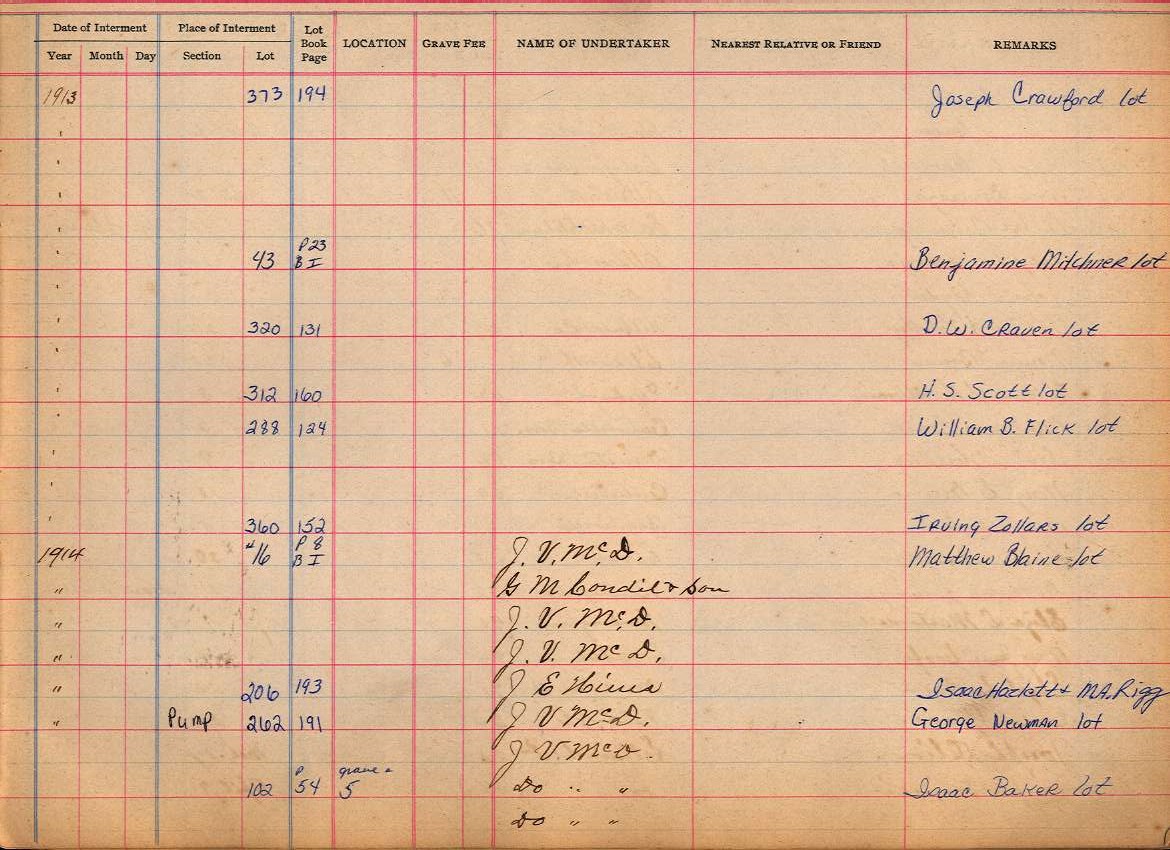 Date of Interment Place of Interment Lot Book Page LOCATION GRAVE FEE NAME OF UNDERTAKER NEAREST RELATIVE OR FRIEND REMARKS
Year Month Day Section Lot
1913 373 194 Joseph Crawford lot
"
"
"
"
P 23
" 43 B I Benjamine Mitchner lot
"
" 320 131 D.W. Craven lot
"
" 312 160 H. S. Scott lot
" 288 124 William B. Flick lot
"
"
" 360 152 Irving Zollars lot
P 8
1914 16 B I J. V. McD. Matthew Blaine lot
" G M Condit & Son
" J. V. McD.
" J. V. McD.
" 206 193 J E Hines Isaac Hazlett & M.A. Rigg
" Pump 262 191 J V McD. George Newman lot
J V McD.
P grave
102 54 5 Do " " Isaac Baker lot
Do " "